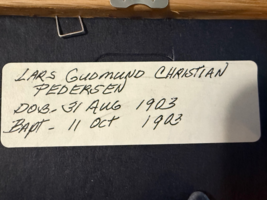 LARS GUDMUND CHRISTIAN
PEDERSEN
DOB- 31 AUG 1903
Bapt- 11 Oct 1903